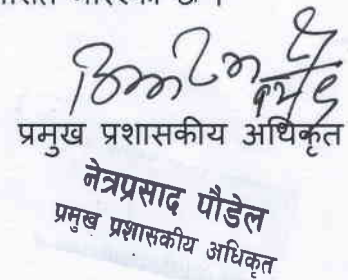 प्रमुख प्रशासकीय अधिकृत
नेत्रप्रसाद पौडेल
प्रमुख प्रशासकीय अधिकृत